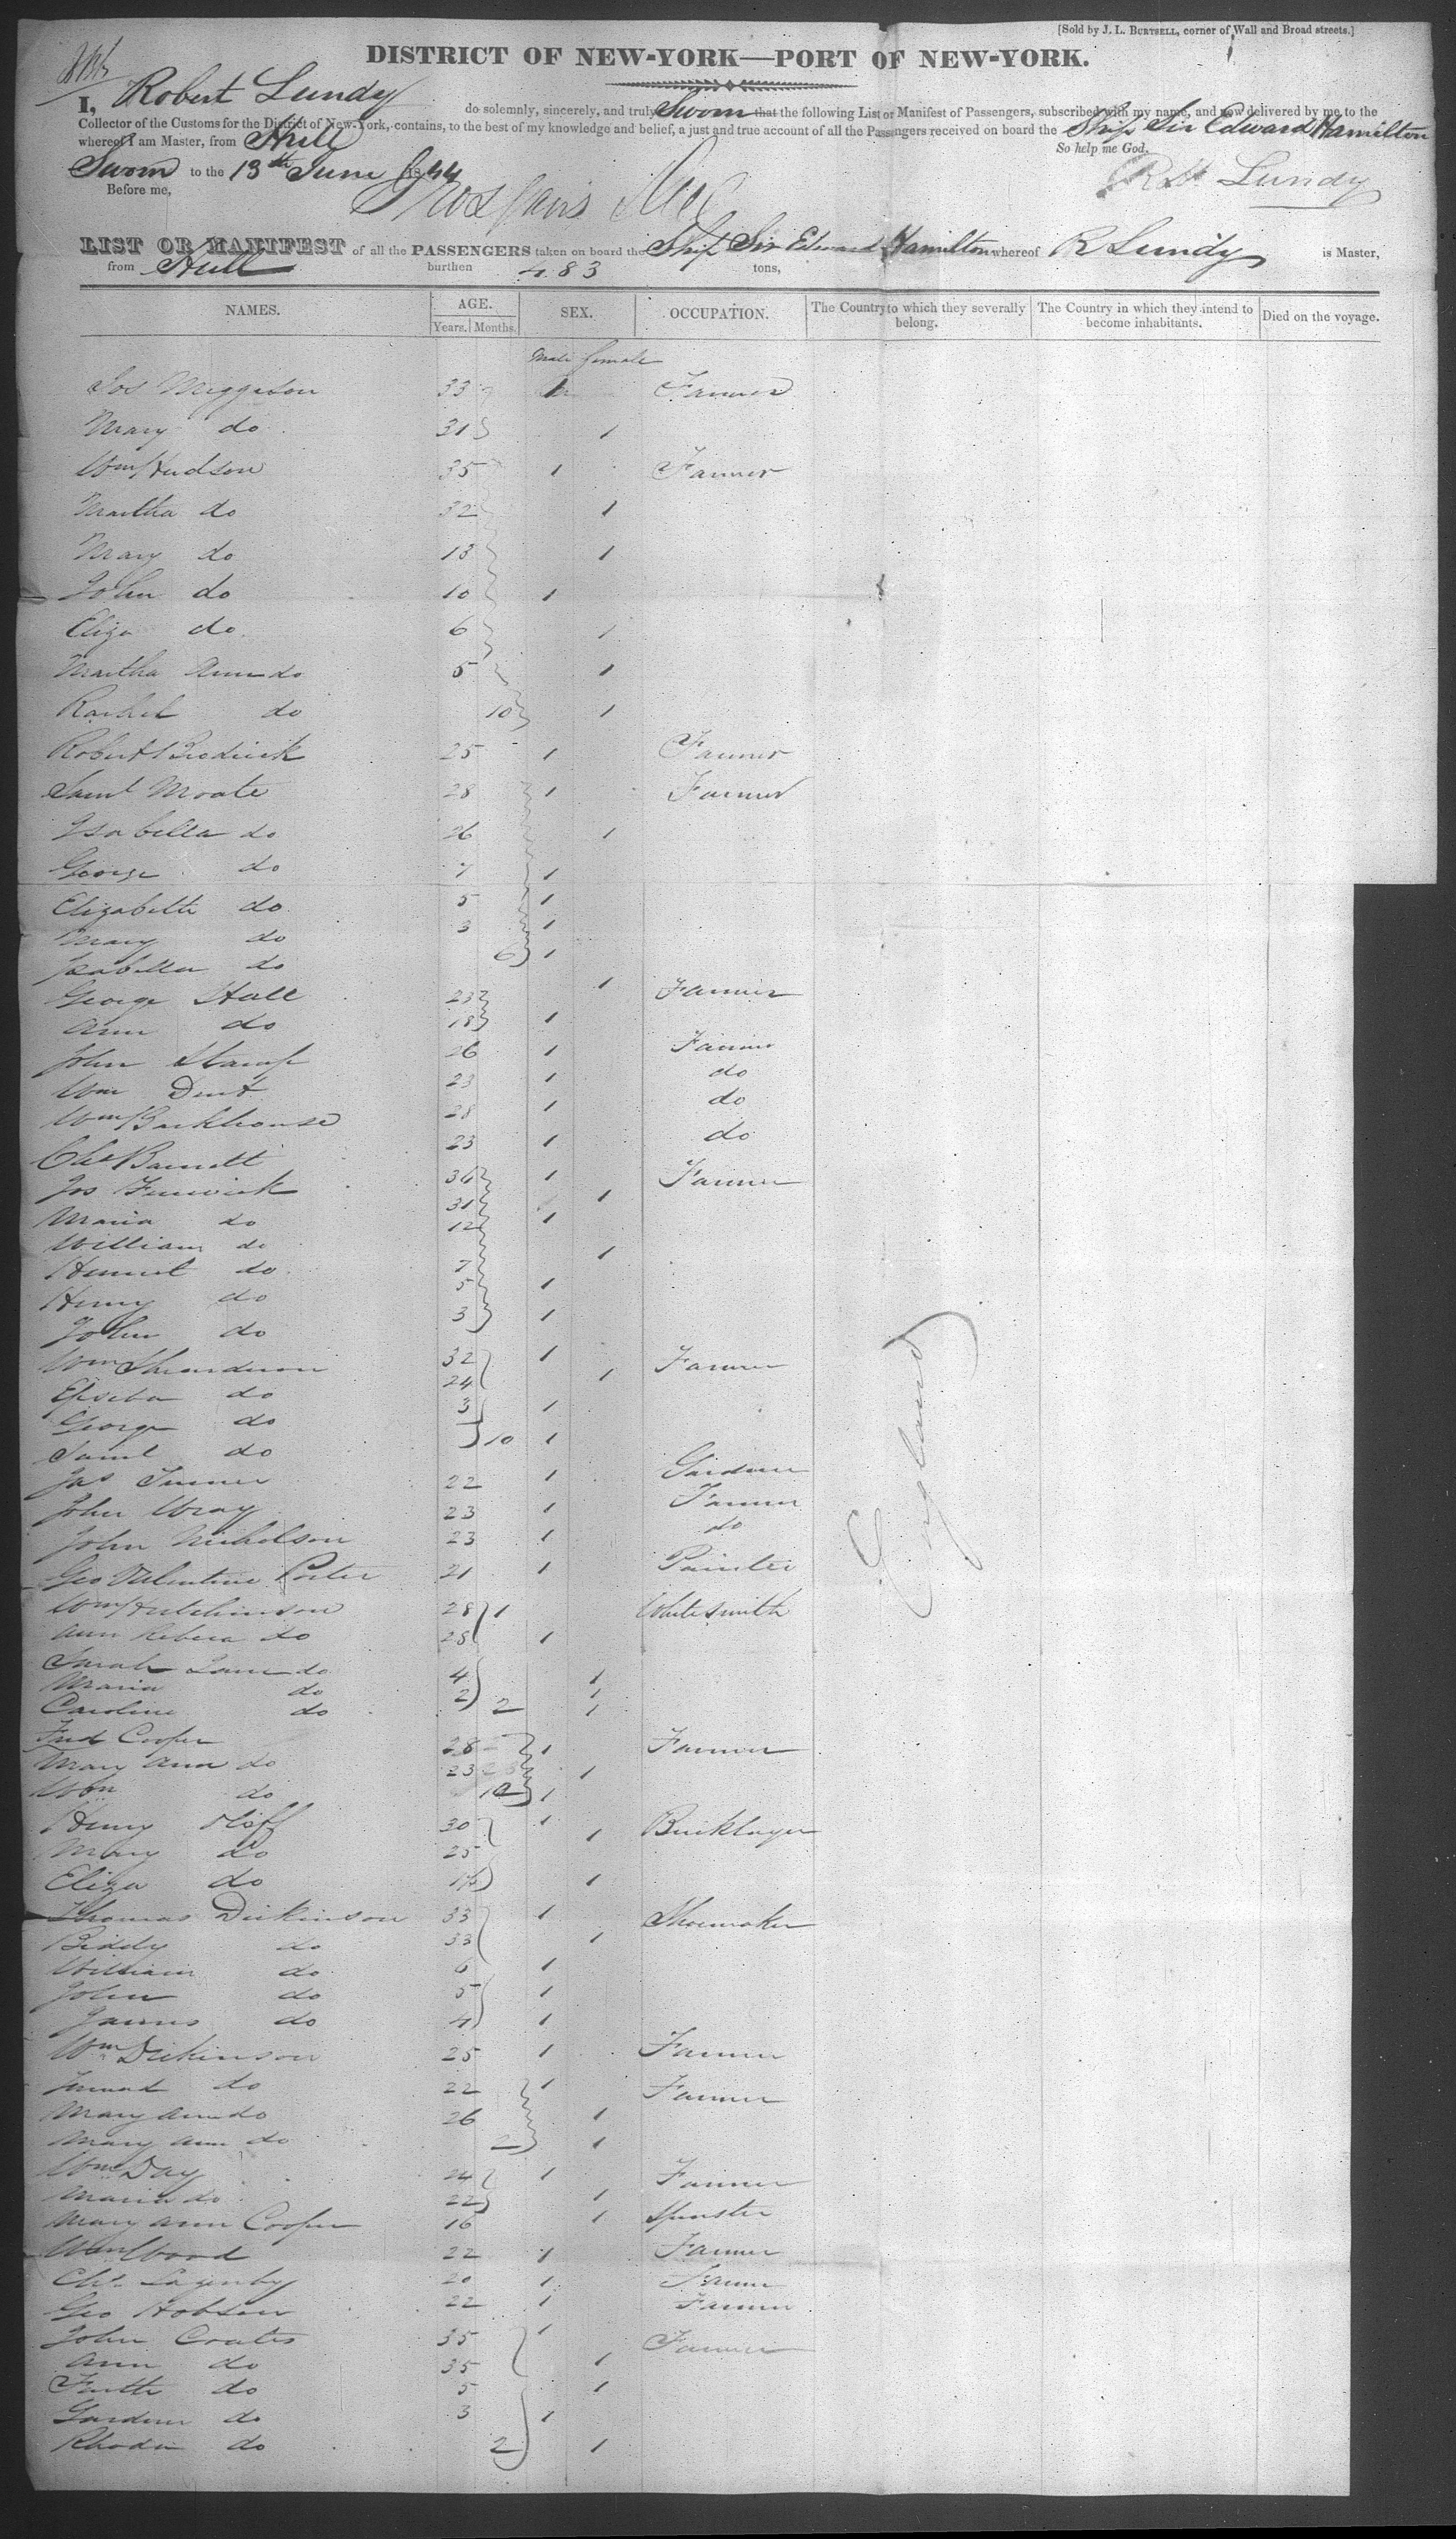 [Sold by J. L. BURTSELL, corner of Wall and Broad streets.]
DISTRICT OF NEW-YORK—PORT OF NEW-YORK.
I, Robert Lundy do solemnly, sincerely, and truly Sworn that the following List or Manifest of Passengers, subscribed with my name, and now delivered by me to the
Collector of the Customs for the District of New-York, contains, to the best of my knowledge and belief, a just and true account of all the Passengers received on board the Ship Sir Edward Hamilton
whereof I am Master, from Hull So help me God.
Sworn to the 13th June 1844 Robt Lundy
Before me,
LIST OR MANIFEST of all the PASSENGERS taken on board the Ship Sir Edward Hamilton whereof R Lundy is Master,
from Hull burthen 483 tons,
NAMES. AGE. Years. Months. SEX. OCCUPATION. The Country to which they severally belong. The Country in which they intend to become inhabitants. Died on the voyage.
Male female
Jos Meggitson 33 1 Farmer
Mary do 31 1
Wm Hudson 35 1 Farmer
Martha do 32 1
Mary do 13 1
John do 10 1
Eliza do 6 1
Martha Ann do 5 1
Rachel do 10 1
Robert Brodrick 25 1 Farmer
Saml Moate 28 1 Farmer
Isabella do 26 1
George do 7 1
Elizabeth do 5 1
Mary do 3 1
Isabella do 6 1
George Hall 23 1 Farmer
Ann do 18 1
John Stamp 26 1 Farmer
Wm Dent 23 1 do
Wm Backhouse 28 1 do
Chs Barnett 23 1 do
Jos Fenwick 36 1 Farmer
Maria do 31 1
William do 12 1
Hannah do 7 1
Henry do 5 1
John do 3 1
Wm 32 1 Farmer
do 24 1
George do 3 1
Saml do 10 1
Jas Turner 22 1 Gardener
John Wray 23 1 Farmer
John Nicholson 23 1 do
Geo Valentine Porter 21 1 Painter
Wm Hutchinson 28 1 Whitesmith
Ann Rebeca do 28 1
Sarah Jane do 4 1
Maria do 2 1
Caroline do 2 1
Fred Cooper 28 1 Farmer
Mary Ann do 23 1
Wm do 10 1
Henry 30 1 Bricklayer
Mary do 25 1
Eliza do 1
Thomas Dickinson 33 1 Shoemaker
Biddy do 33 1
William do 6 1
John do 5 1
James do 4 1
Wm Dickinson 25 1 Farmer
do 22 1 Farmer
Mary Ann do 26 1
Mary Ann do 2 1
Wm Day 24 1 Farmer
Maria do 22 1
Mary Ann Cooper 16 1 Spinster
Wm Wood 22 1 Farmer
Chs Lazenby 20 1 Farmer
Geo Hobson 22 1 Farmer
John Coates 35 1 Farmer
Ann do 35 1
Faith do 5 1
Gardener do 3 1
Rhoda do 2 1
England